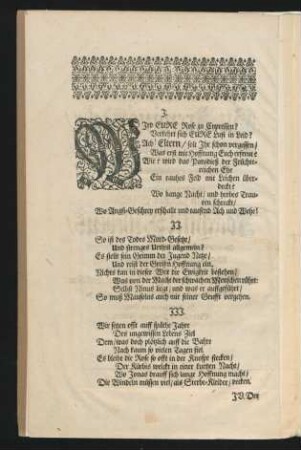 I.
WIrd EURE Rose zu Cypressen?
Verkehrt sich EURE Lust in Leid?
Ach/ Eltern/ solt Ihr schon vergessen/
Was erst mit Hoffnung Euch erfreut?
Wie? wird das Paradieß der Fruchtreichen
Ehe
Ein rauhes Feld mit Leichen überdeckt?
Wo bange Nacht/ und herbes Trauren
schreckt/
Wo Angst-Geschrey erschallt und tausend Ach und Wehe?
II.
So ist des Todes Mord-Gesetz/
Und strenges Urtheil allgemein?
Es stellt sein Grimm der Jugend Netze/
Und reist der Greisen Hoffnung ein.
Nichts kan in dieser Welt die Ewigkeit bestehen/
Was von der Macht der schwachen Menschen rührt:
Selbst Ninus liegt/ und was er aufgeführt/
So muß Mausolus auch mit seiner Grufft vergehen.
III.
Wir setzen offt auff späthe Jahre
Des ungewissen Lebens Ziel
Dem/ was doch plötzlich auff die Bahre
Nach kaum so vielen Tagen fiel.
Es bleibt die Rose so offt in der Knospe stecken/
Der Kürbis welckt in einer kurtzen Nacht/
Wo Jonas drauff sich lange Hoffnung macht/
Die Windeln müssen viel/ als Sterbe-Kleider/ decken.
IV. Der